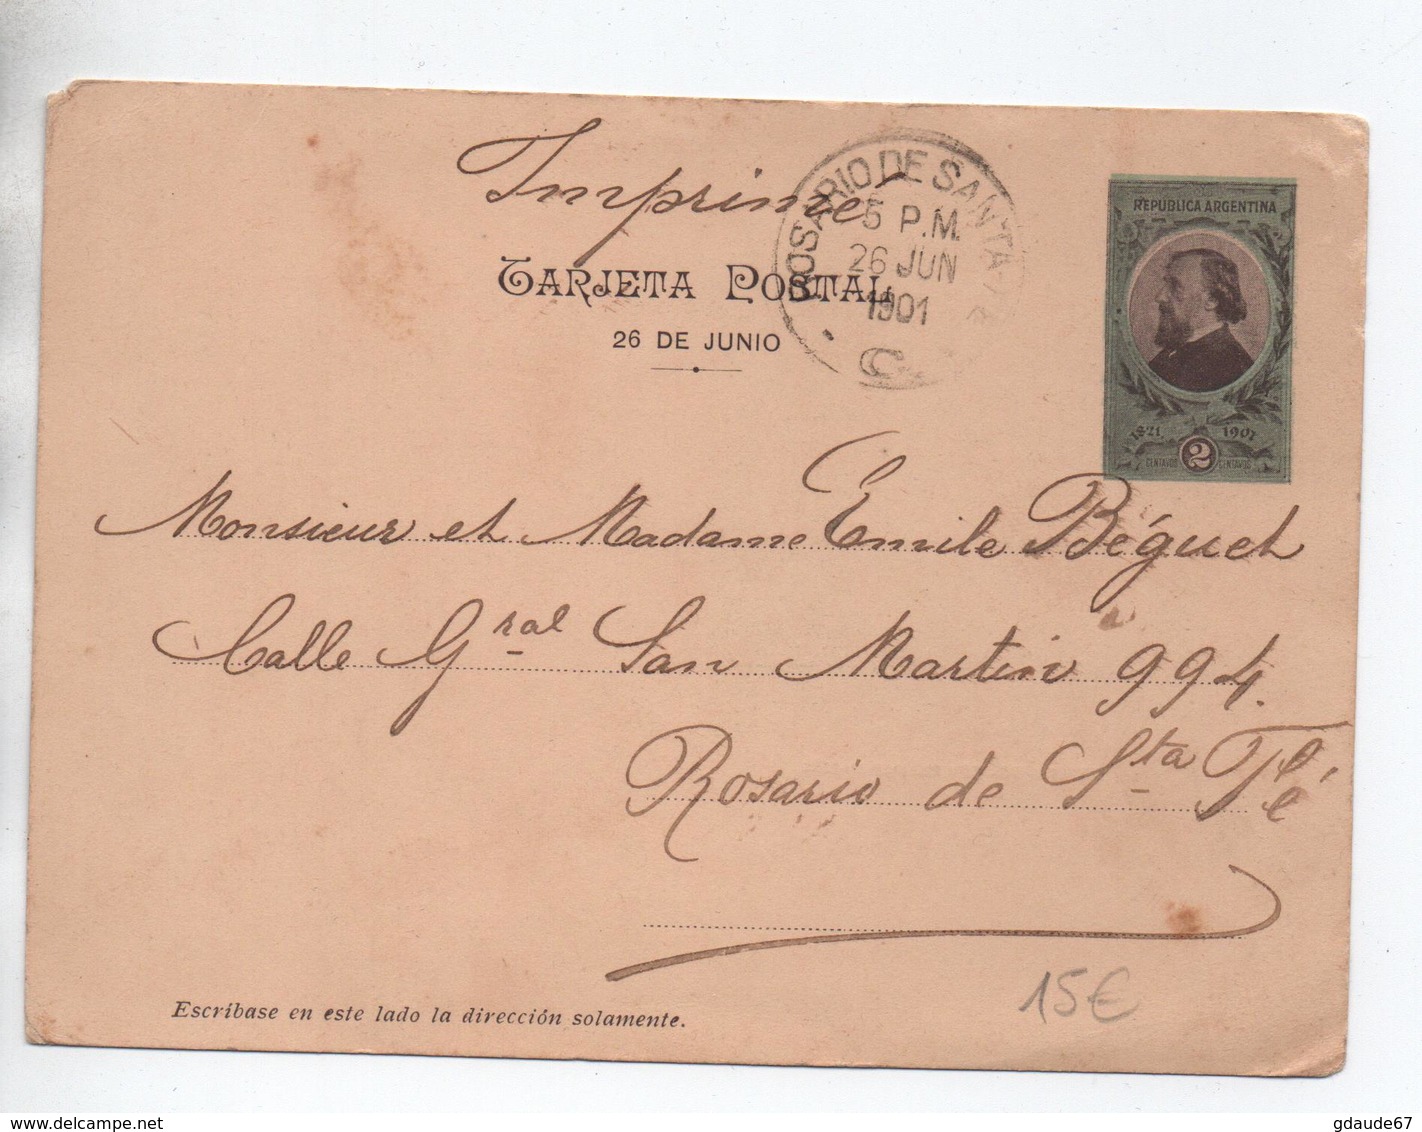 Imprimé
ROSARIO DE SANTA
5 P.M.
26 JUN
1901
TARJETA POSTAL
26 DE JUNIO
REPUBLICA ARGENTINA
1821 1901
CENTAVOS 2 CENTAVOS
Monsieur et Madame Emile Béguet
Calle Gral San Martin 994.
Rosario de Sta Fé
15€
Escríbase en este lado la dirección solamente.
www.delcampe.net
gdaude67